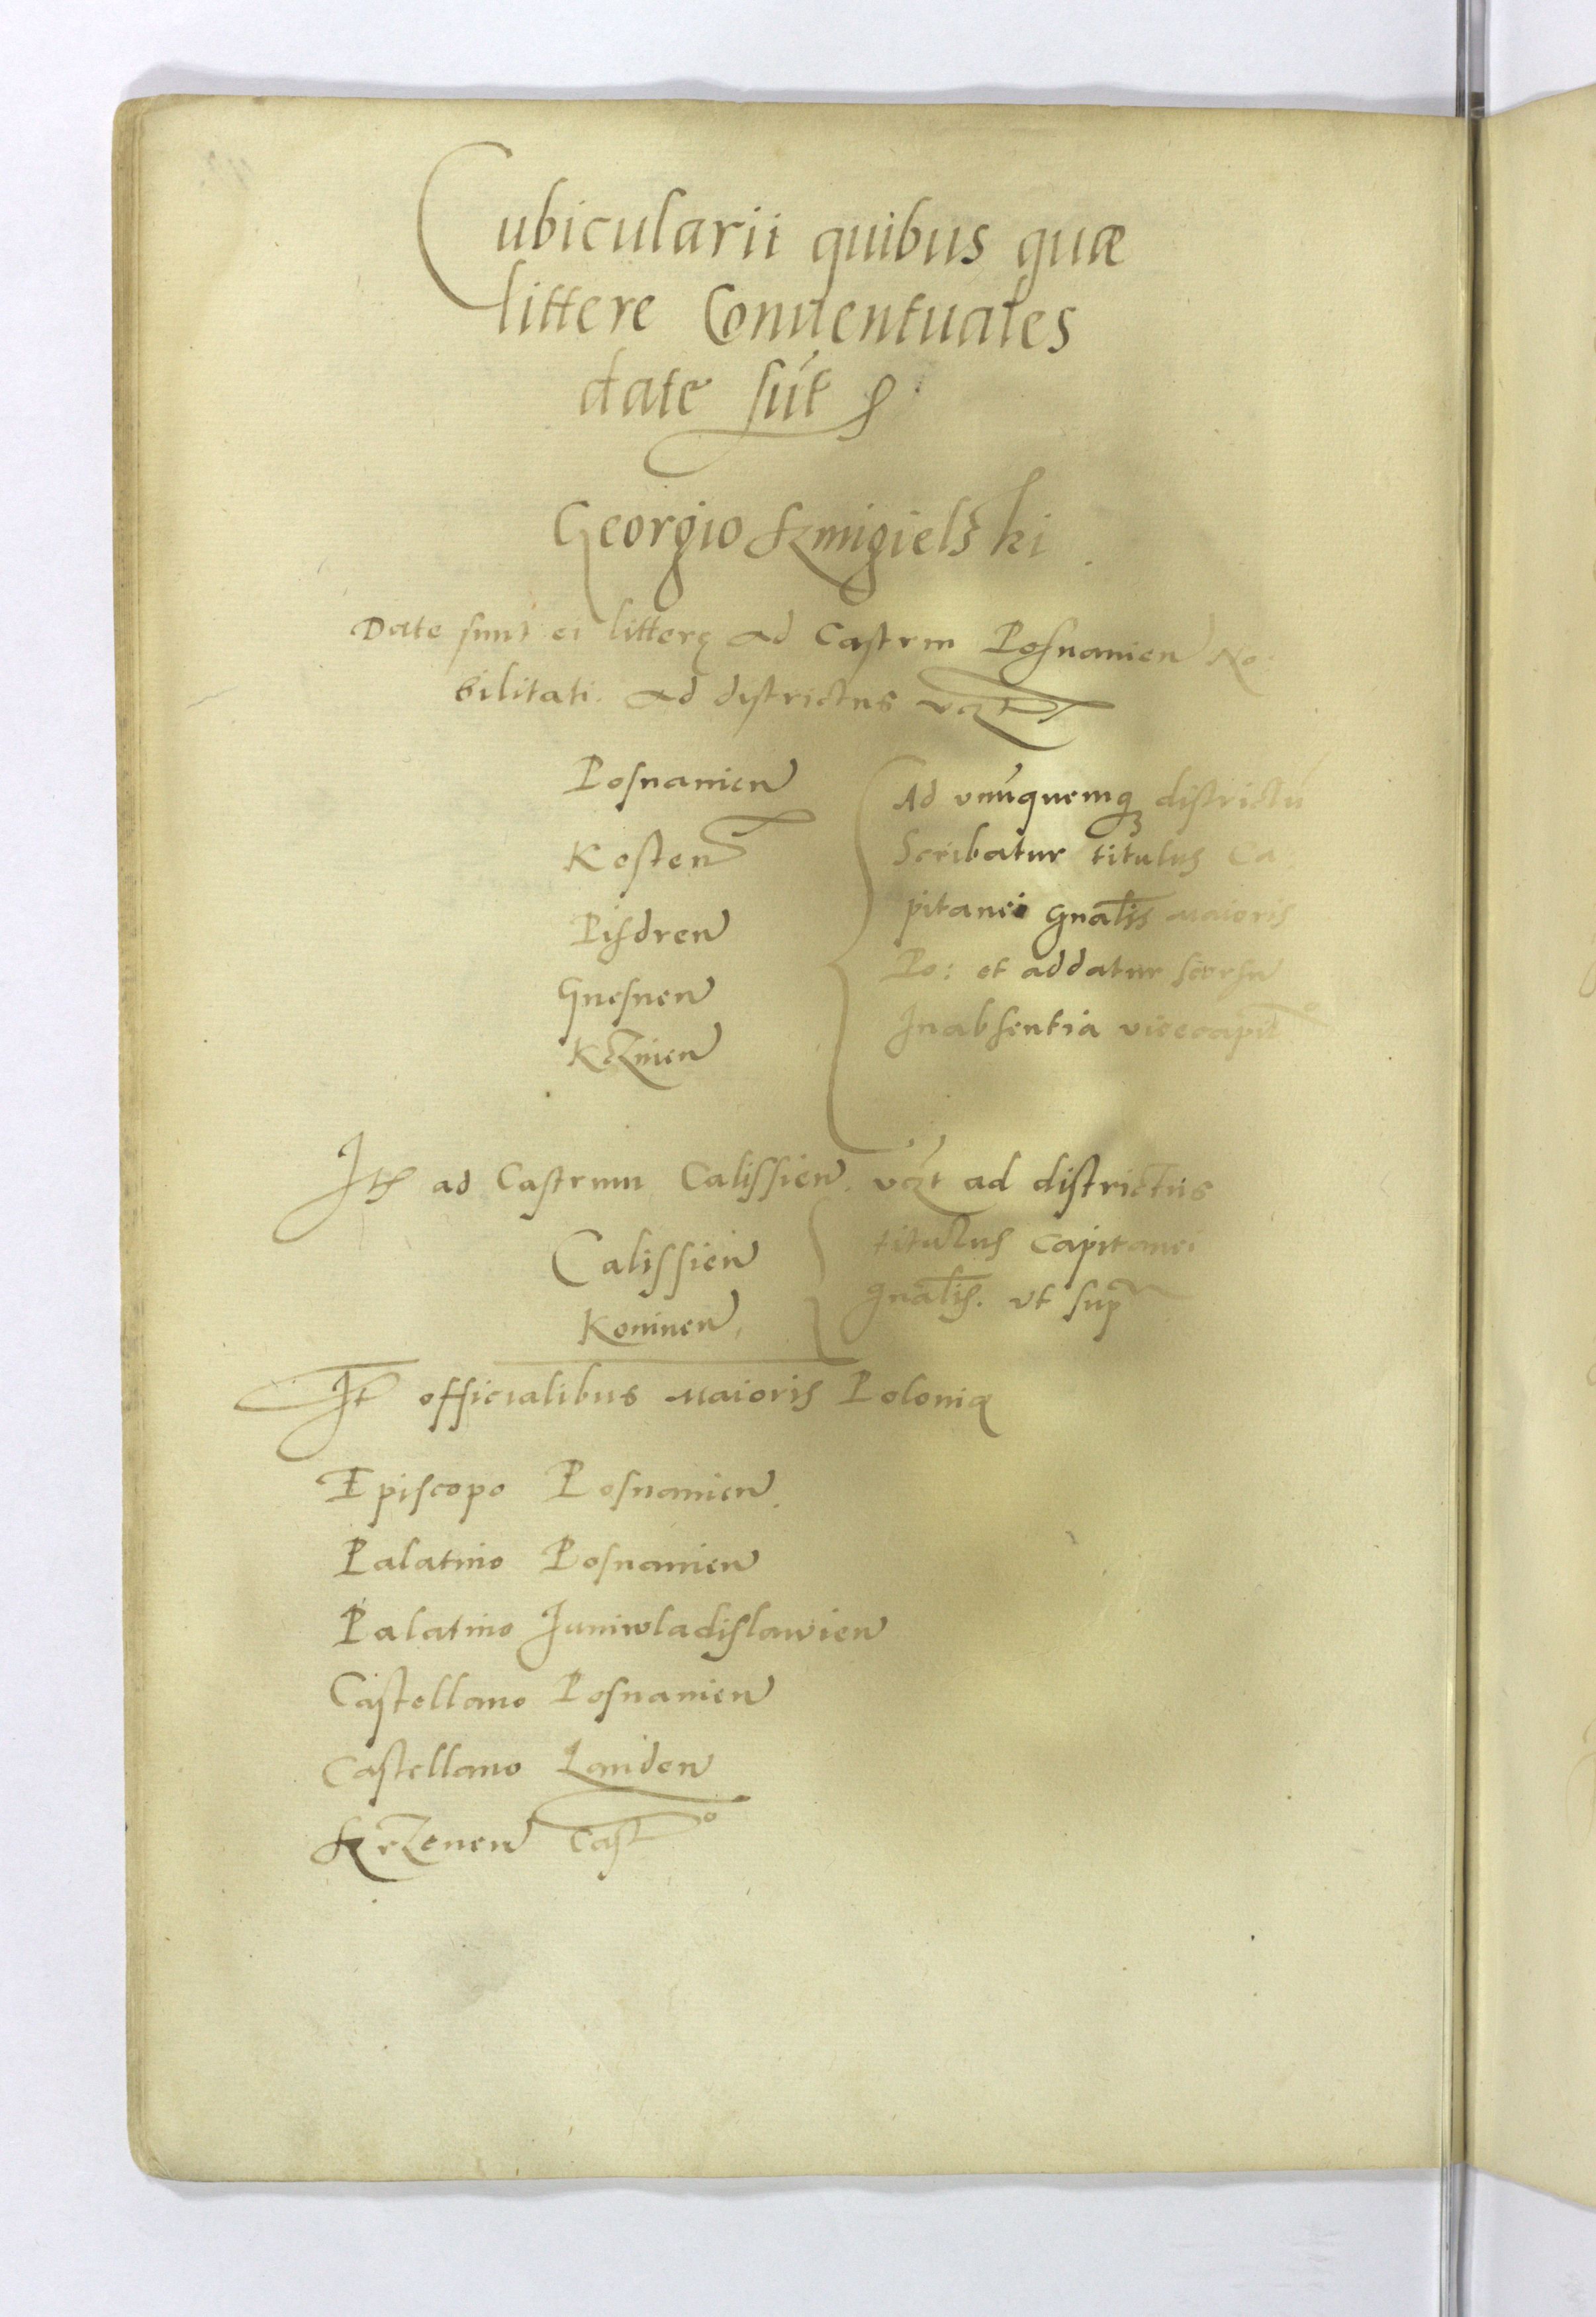 Cubicularii quibus quæ
littere Conuentuales
date sūt
Georgio Szmigielski
Date sunt ei litterę ad Castrm Posnanien No:
bilitati. ad districtus vzt
Posnanien
Kosten
Pisdren
Gnesnen
Kczinen
Ad vnūquemq districtū
Scribatur titulus Ca
pitanei Gnalis Maioris
Po: et addatur seorsū
In absentia vicecapito
Itē ad Castrum Calissien. vzt ad districtus
Calissien
Koninen
titulus Capitanei
gnalis. vt sup
It officialibus Maioris Polonię
Episcopo Posnanien
Palatino Posnanien
Palatino Juniwladislawien
Castellano Posnanien
Castellano Landen
Cast°